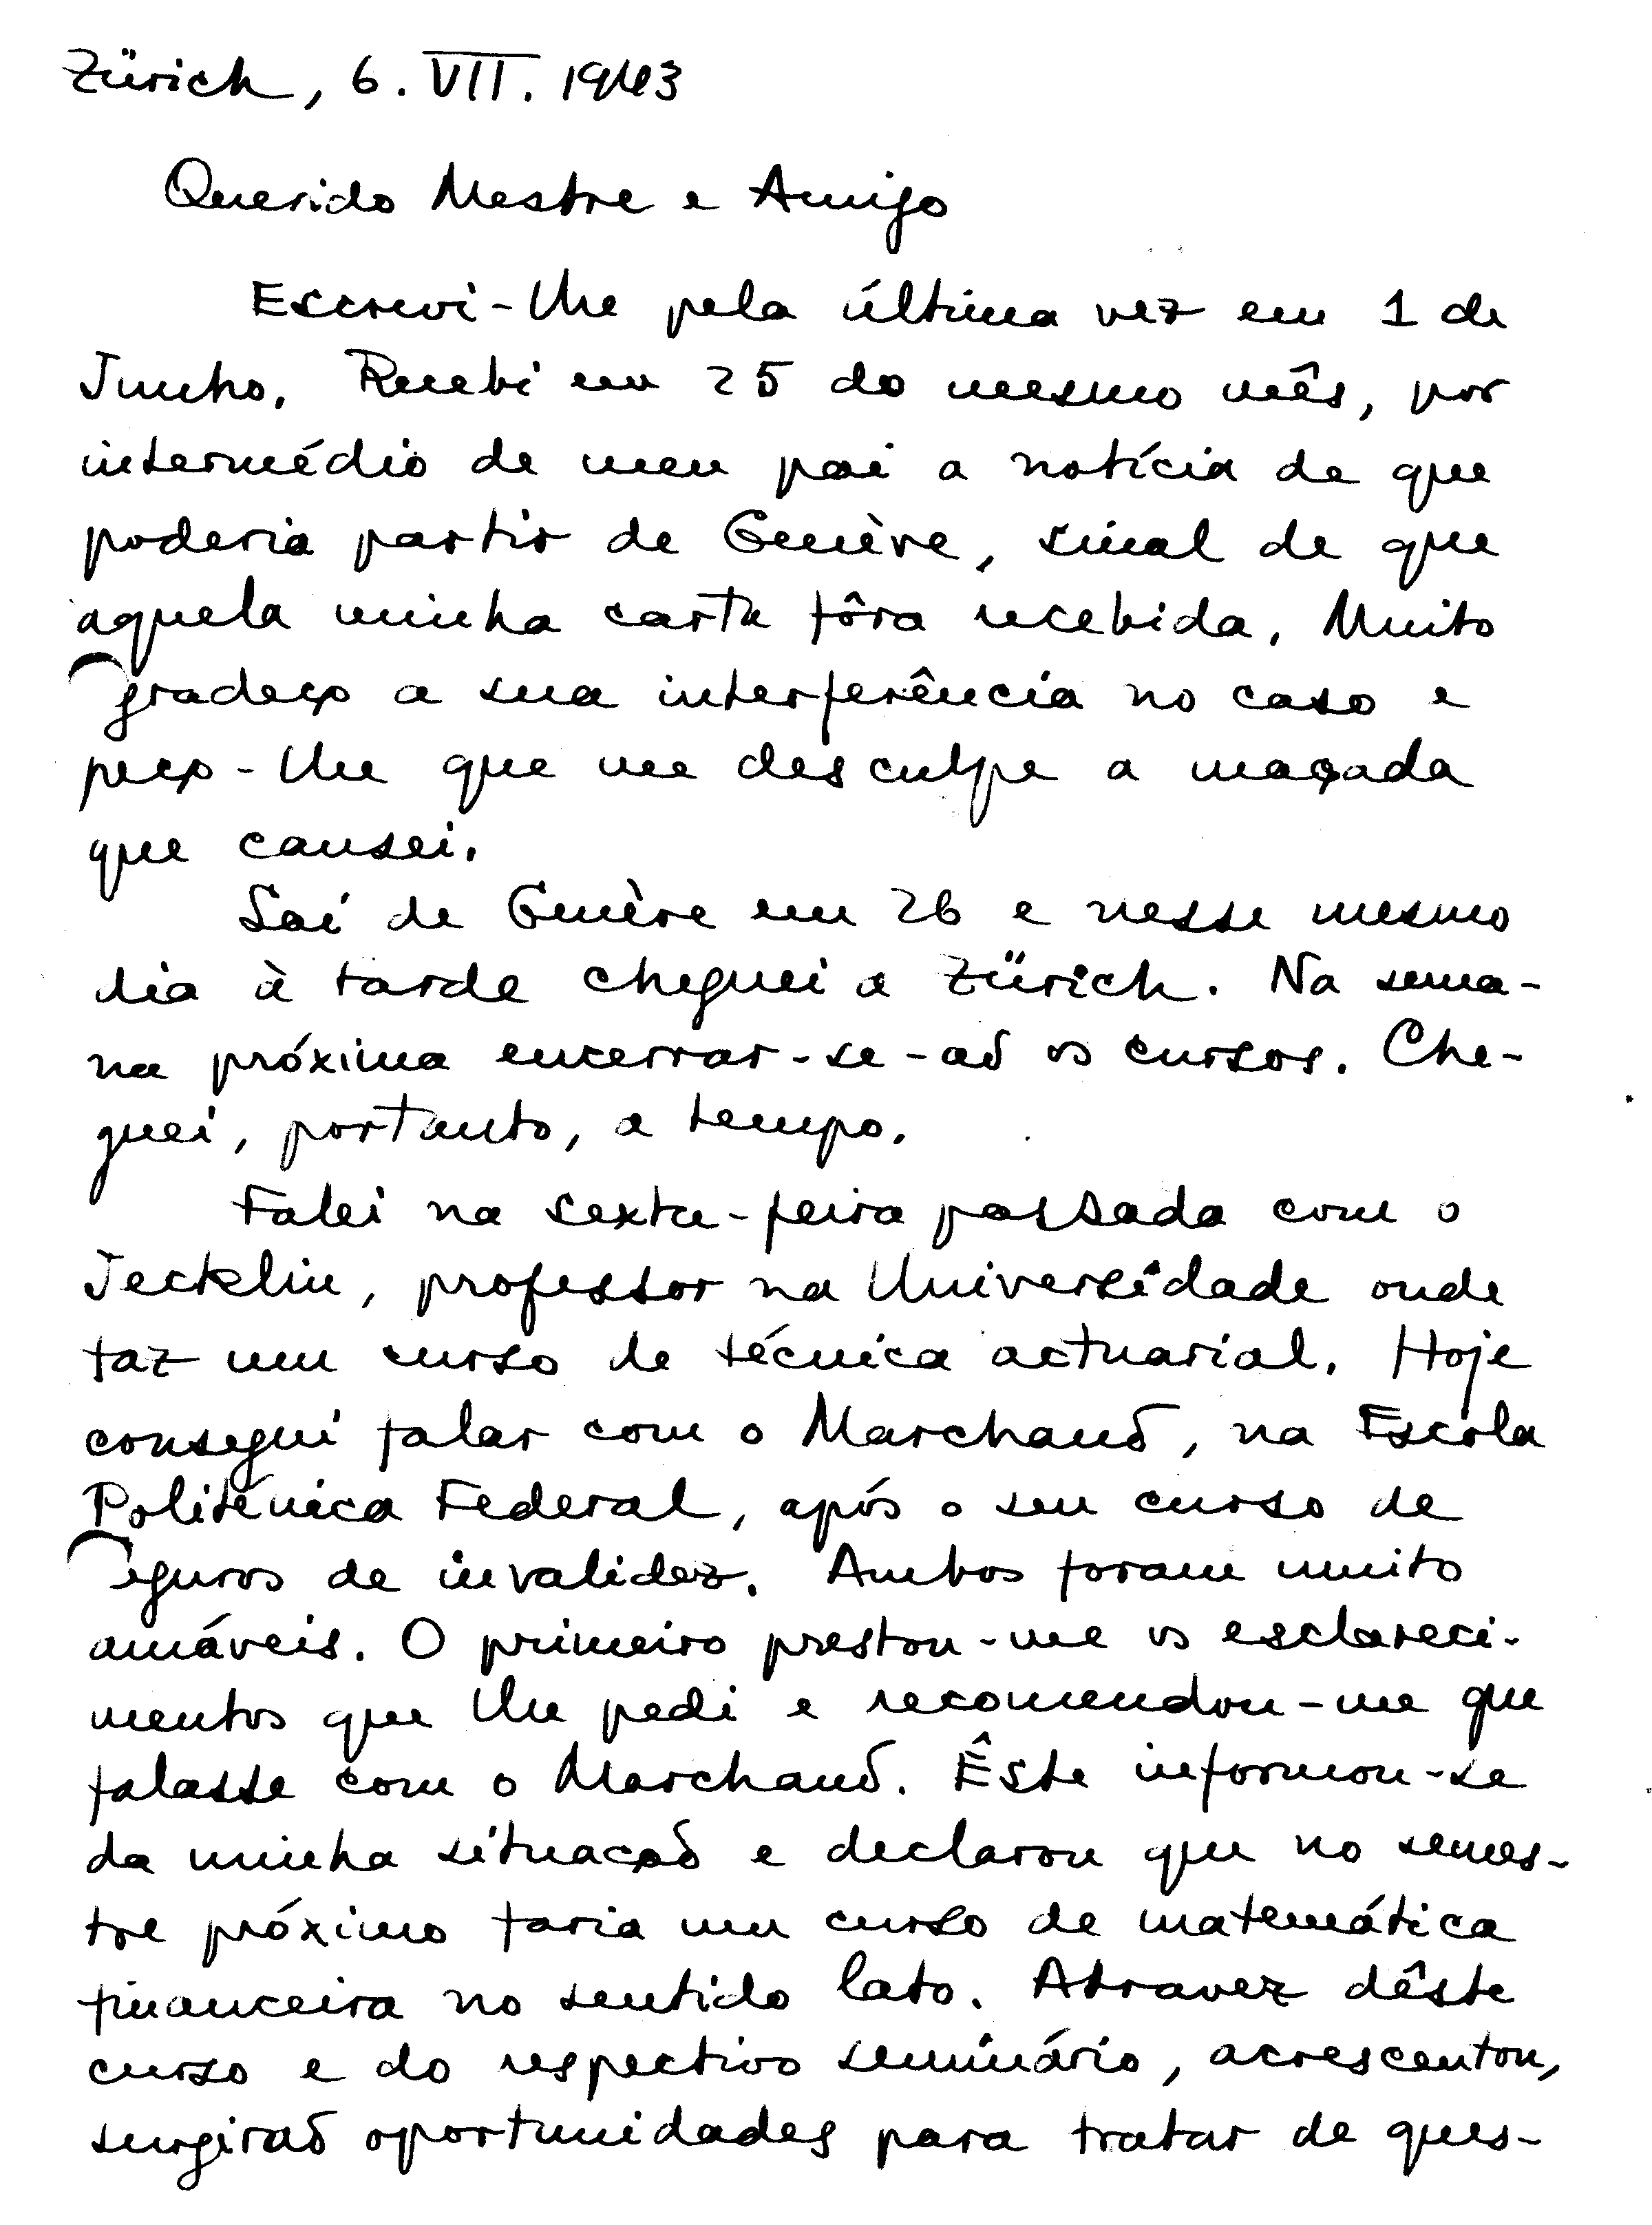 Zürich, 6. VII. 1943
Querido Mestre e Amigo
Escrevi-lhe pela última vez em 1 de
Junho. Recebi em 25 do mesmo mês, por
intermédio de meu pai a notícia de que
poderia partir de Genève, sinal de que
aquela minha carta fôra recebida. Muito
gradeço a sua interferência no caso e
peço-lhe que me desculpe a maçada
que causei.
Saí de Genève em 26 e nesse mesmo
dia à tarde cheguei a Zürich. Na sema-
na próxima encerrar-se-aõ os cursos. Che-
guei, portanto, a tempo.
Falei na sexta-feira passada com o
Jecklin, professor na Universidade onde
faz um curso de técnica actuarial. Hoje
consegui falar com o Marchand, na Escola
Politénica Federal, após o seu curso de
eguros de invalidez. Ambos foram muito
amáveis. O primeiro prestou-me os esclareci-
mentos que lhe pedi e recomendou-me que
falasse com o Marchand. Êste informou-se
da minha situaçaõ e declarou que no semes-
tre próximo faria um curso de matemática
financeira no sentido lato. Atravez dêste
curso e do respectivo seminário, acrescentou,
surgiraõ oportunidades para tratar de ques-